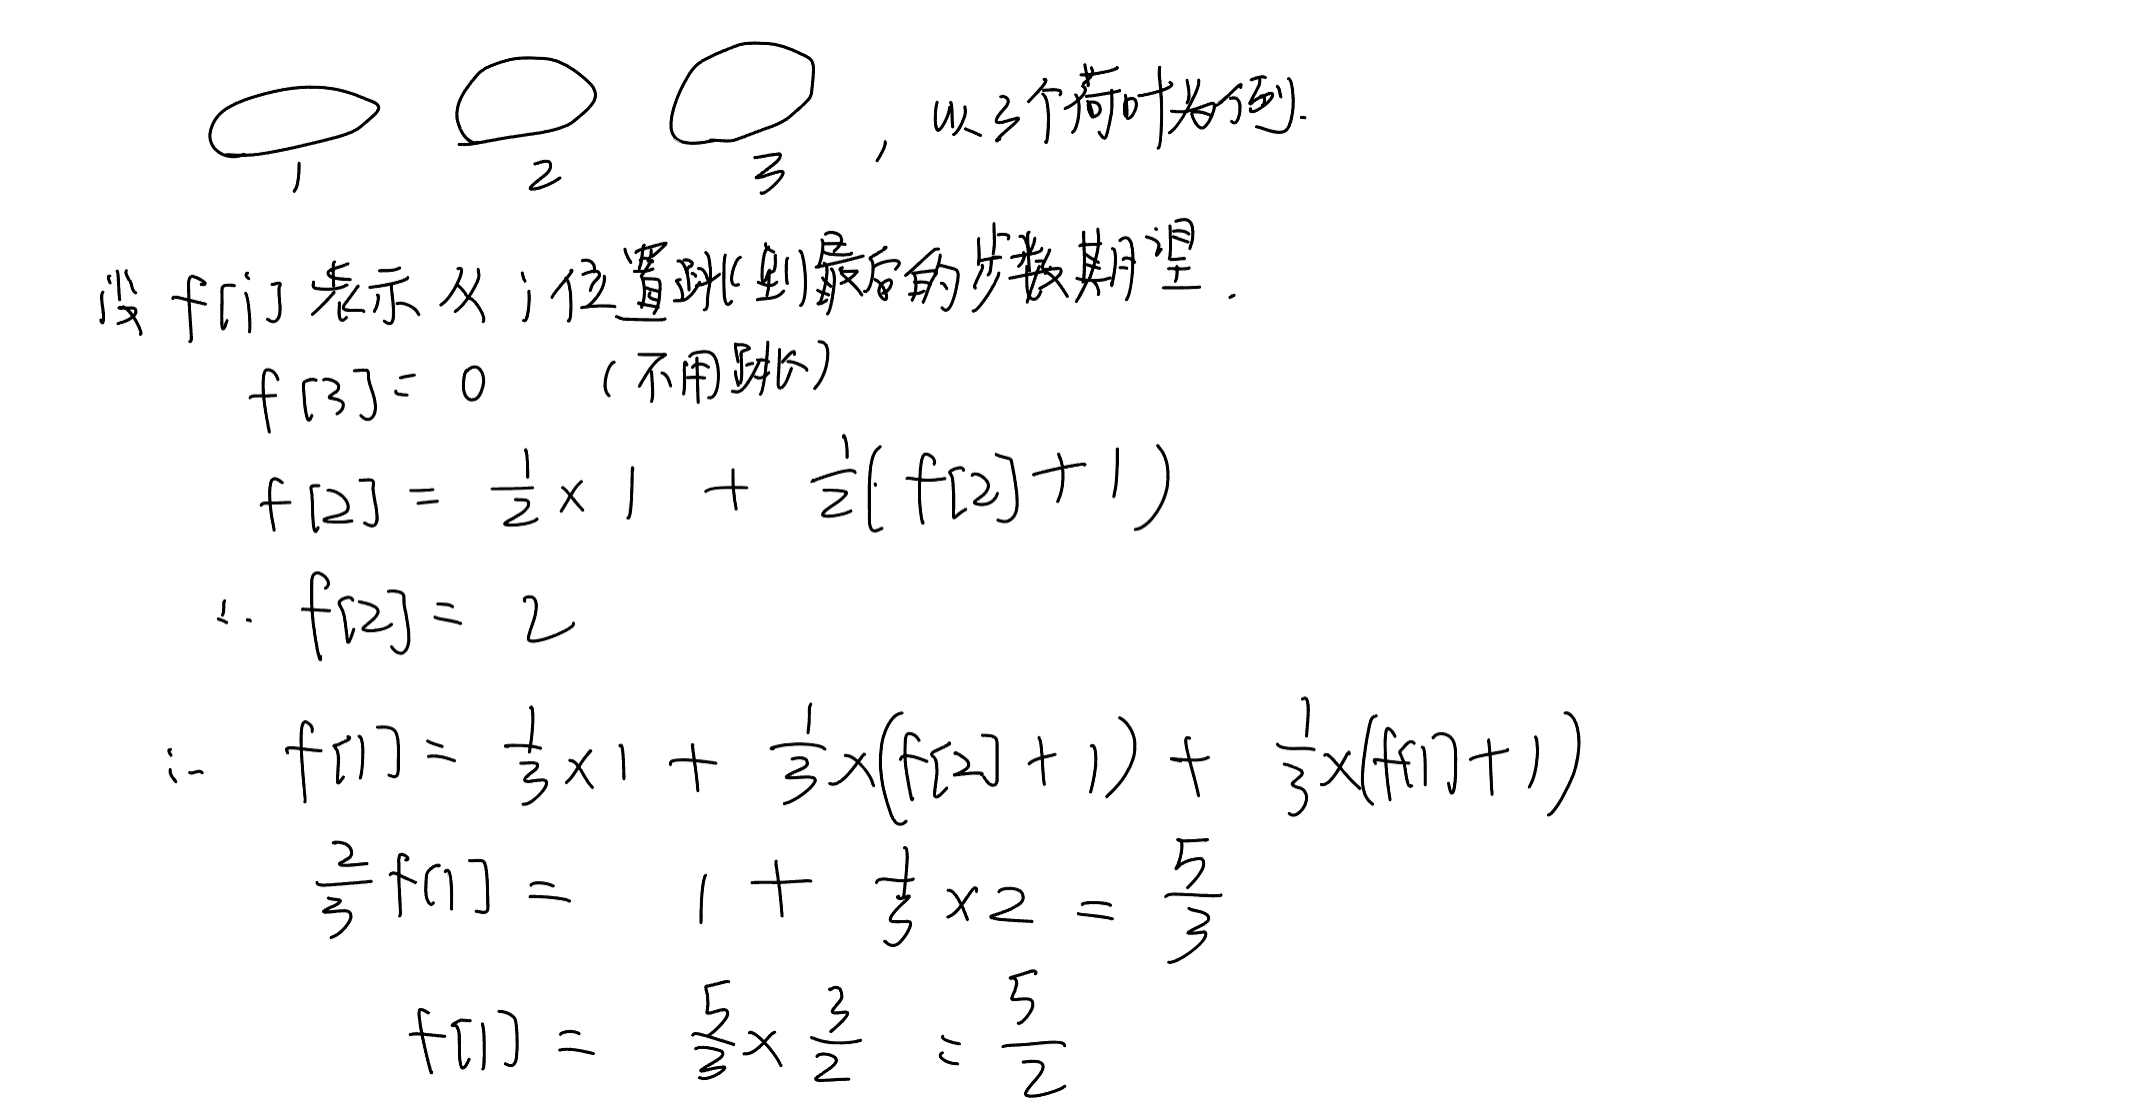 1 2 3 , 以3个荷叶为例.
设 f[i] 表示从 i 位置跳到最后的步数期望.
f[3] = 0 (不用跳)
f[2] = 1/2 × 1 + 1/2 ( f[2] + 1 )
∴ f[2] = 2
∴ f[1] = 1/3 × 1 + 1/3 × (f[2] + 1) + 1/3 × (f[1] + 1)
2/3 f[1] = 1 + 1/3 × 2 = 5/3
f[1] = 5/3 × 3/2 = 5/2